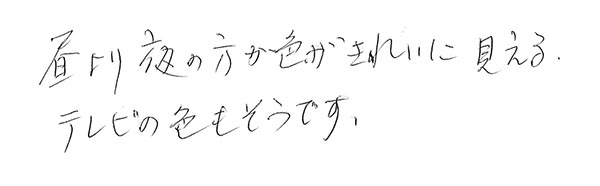 昼より夜の方が色がきれいに見える.
テレビの色もそうです、